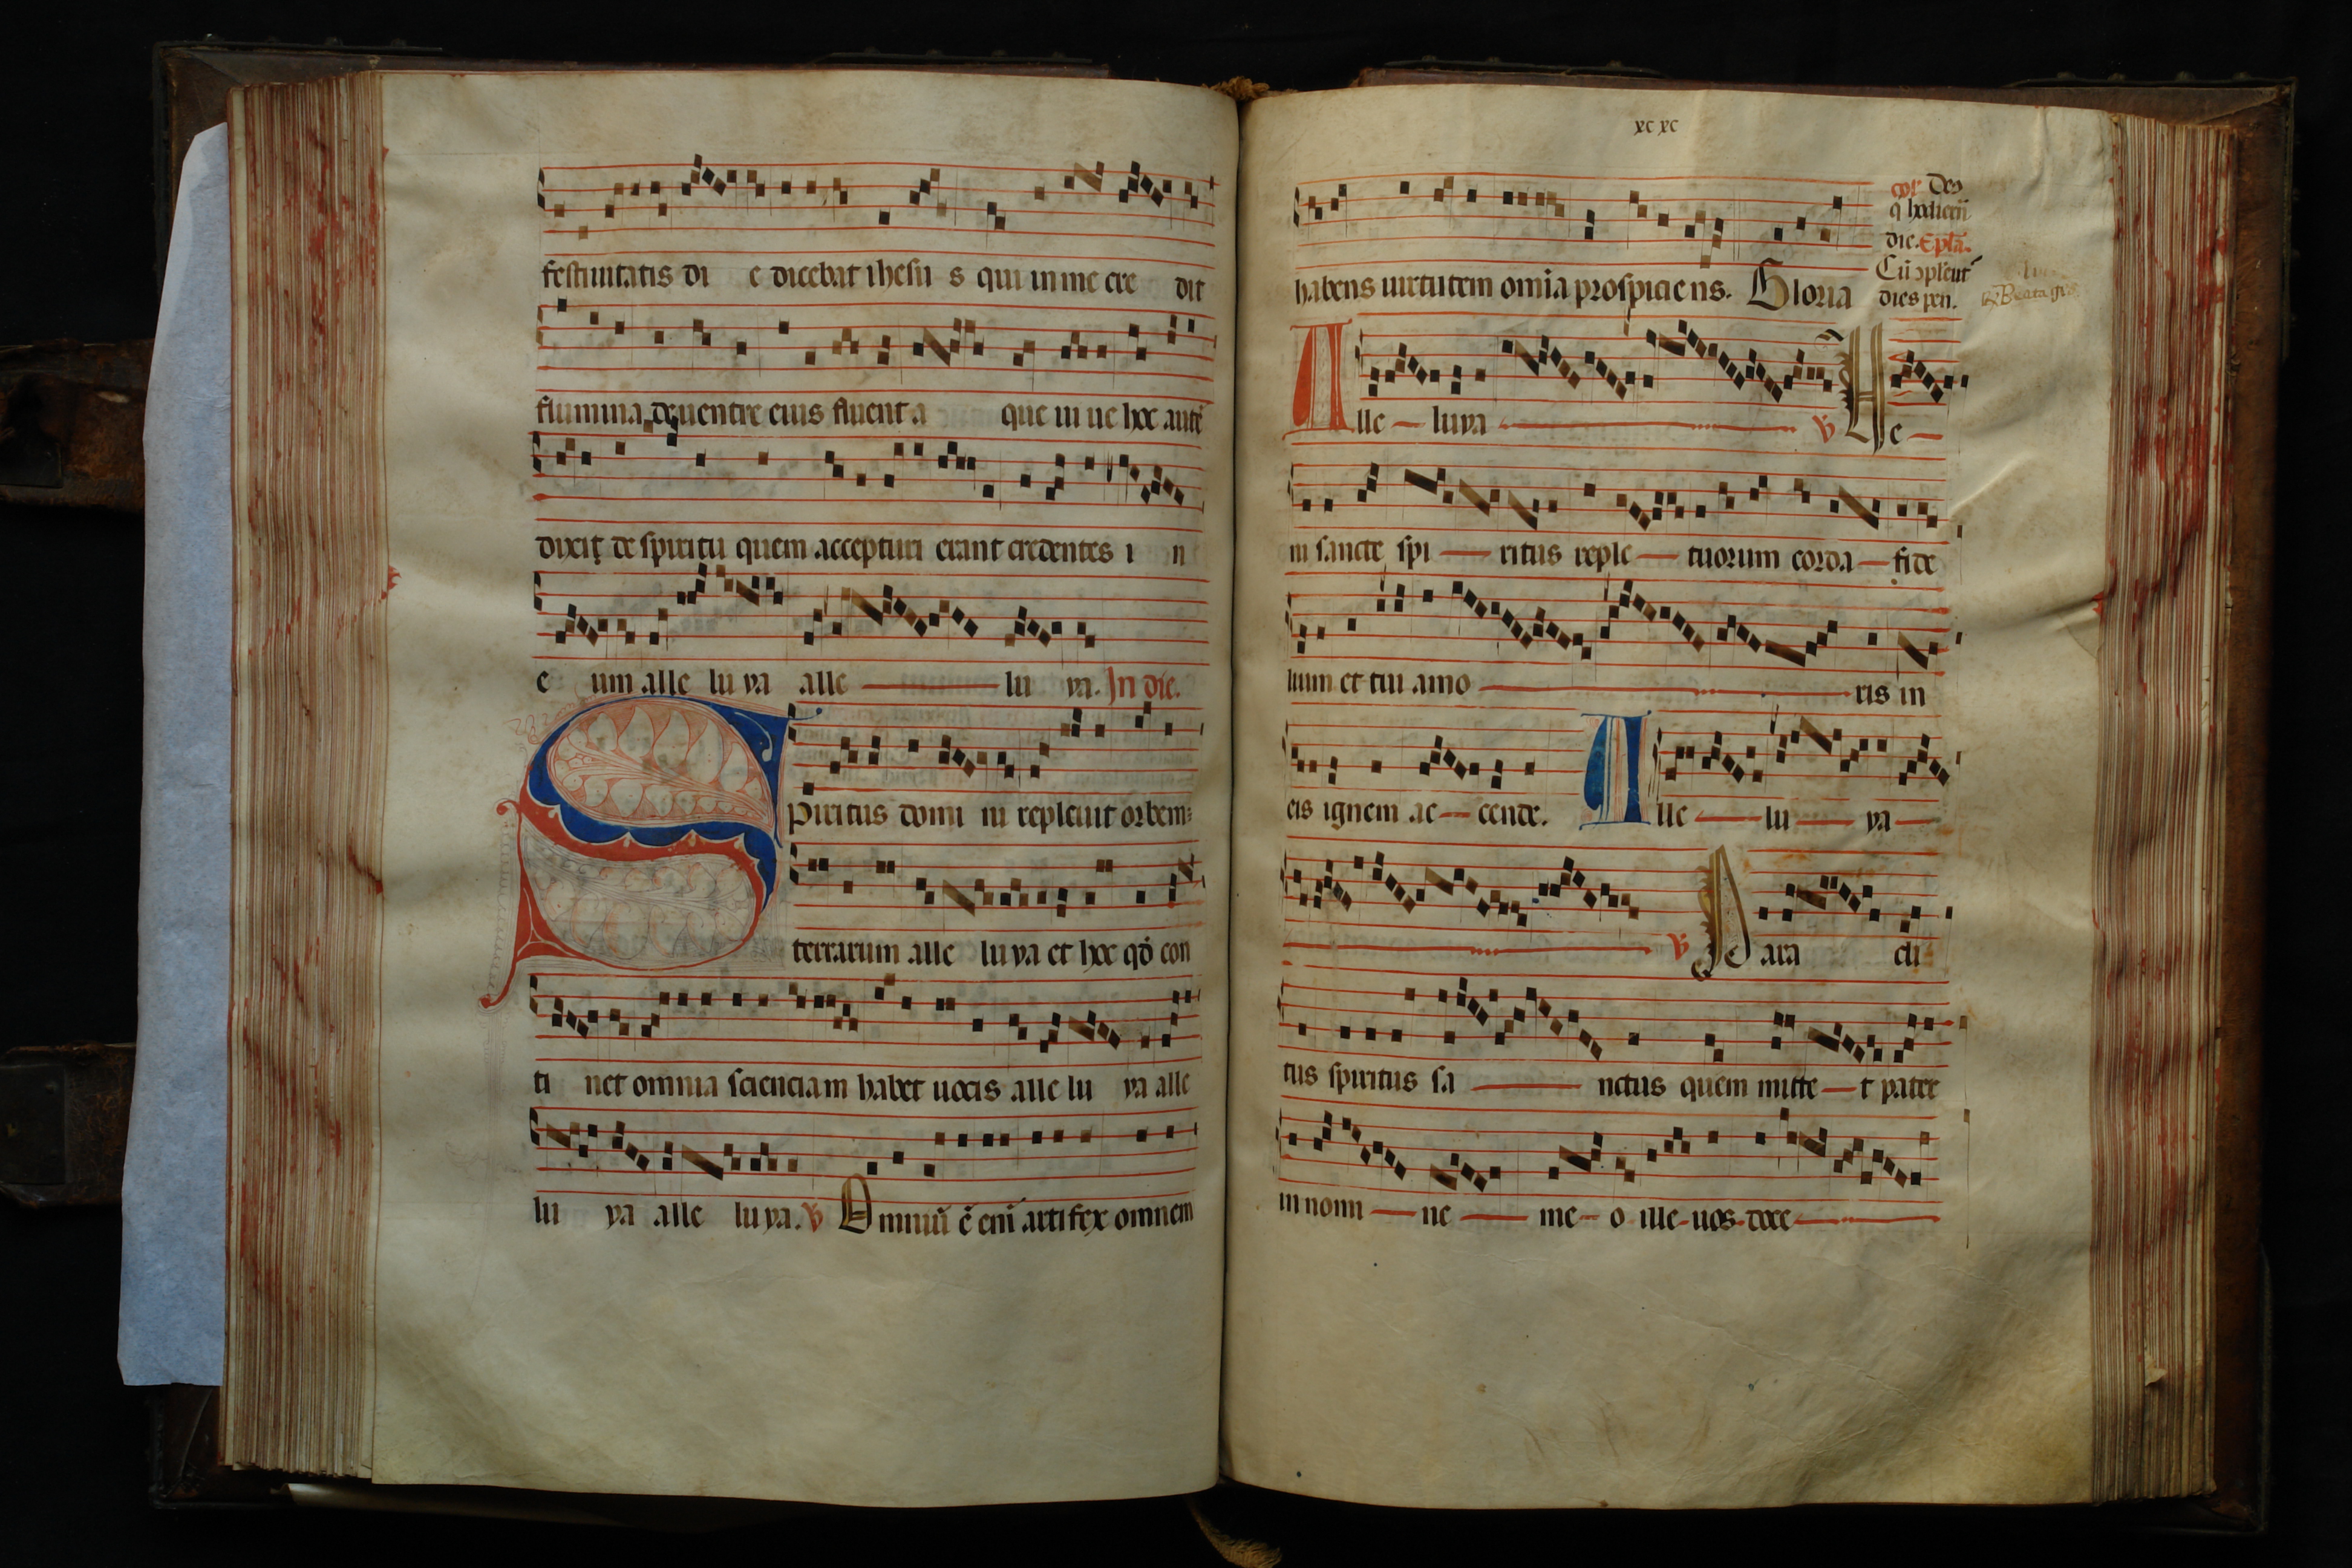 festiuitatis di e dicebat ihesu s qui in me cre dit
flumina de uentre eius fluent a que ui ue hoc autē
dixit de spiritu quem accepturi erant credentes i n
e um alle lu ya alle lu ya. In die.
Spiritus domi ni repleuit orbem
terrarum alle lu ya et hoc qđ con
ti net omnia scienciam habet uocis alle lu ya alle
lu ya alle lu ya. V Omniū ē eni artifex omnem
xc xc
habens uirtutem omīa prospicie ns. Gloria
Des
q hodiern̄
die. Epl̄a.
Cū ɔplent
dies pen.
Alle luya V Ve
ni sancte spi ritus reple tuorum corda fide
lium et tui amo ris in
eis ignem ac cende. Alle lu ya
V Para cli
tus spiritus sa nctus quem mitte t pater
in nomi ne me o ille uos doce